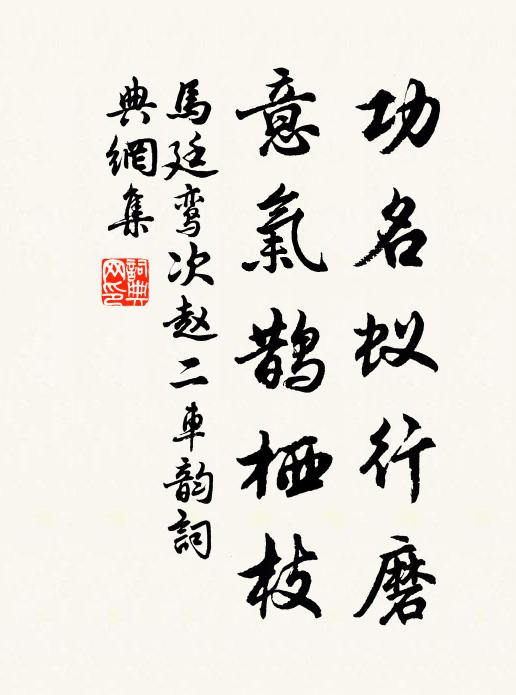 功名蚁行磨
意氣鹊栖枝
馬廷鸾次赵二車韵詞
典網集
詞典网印